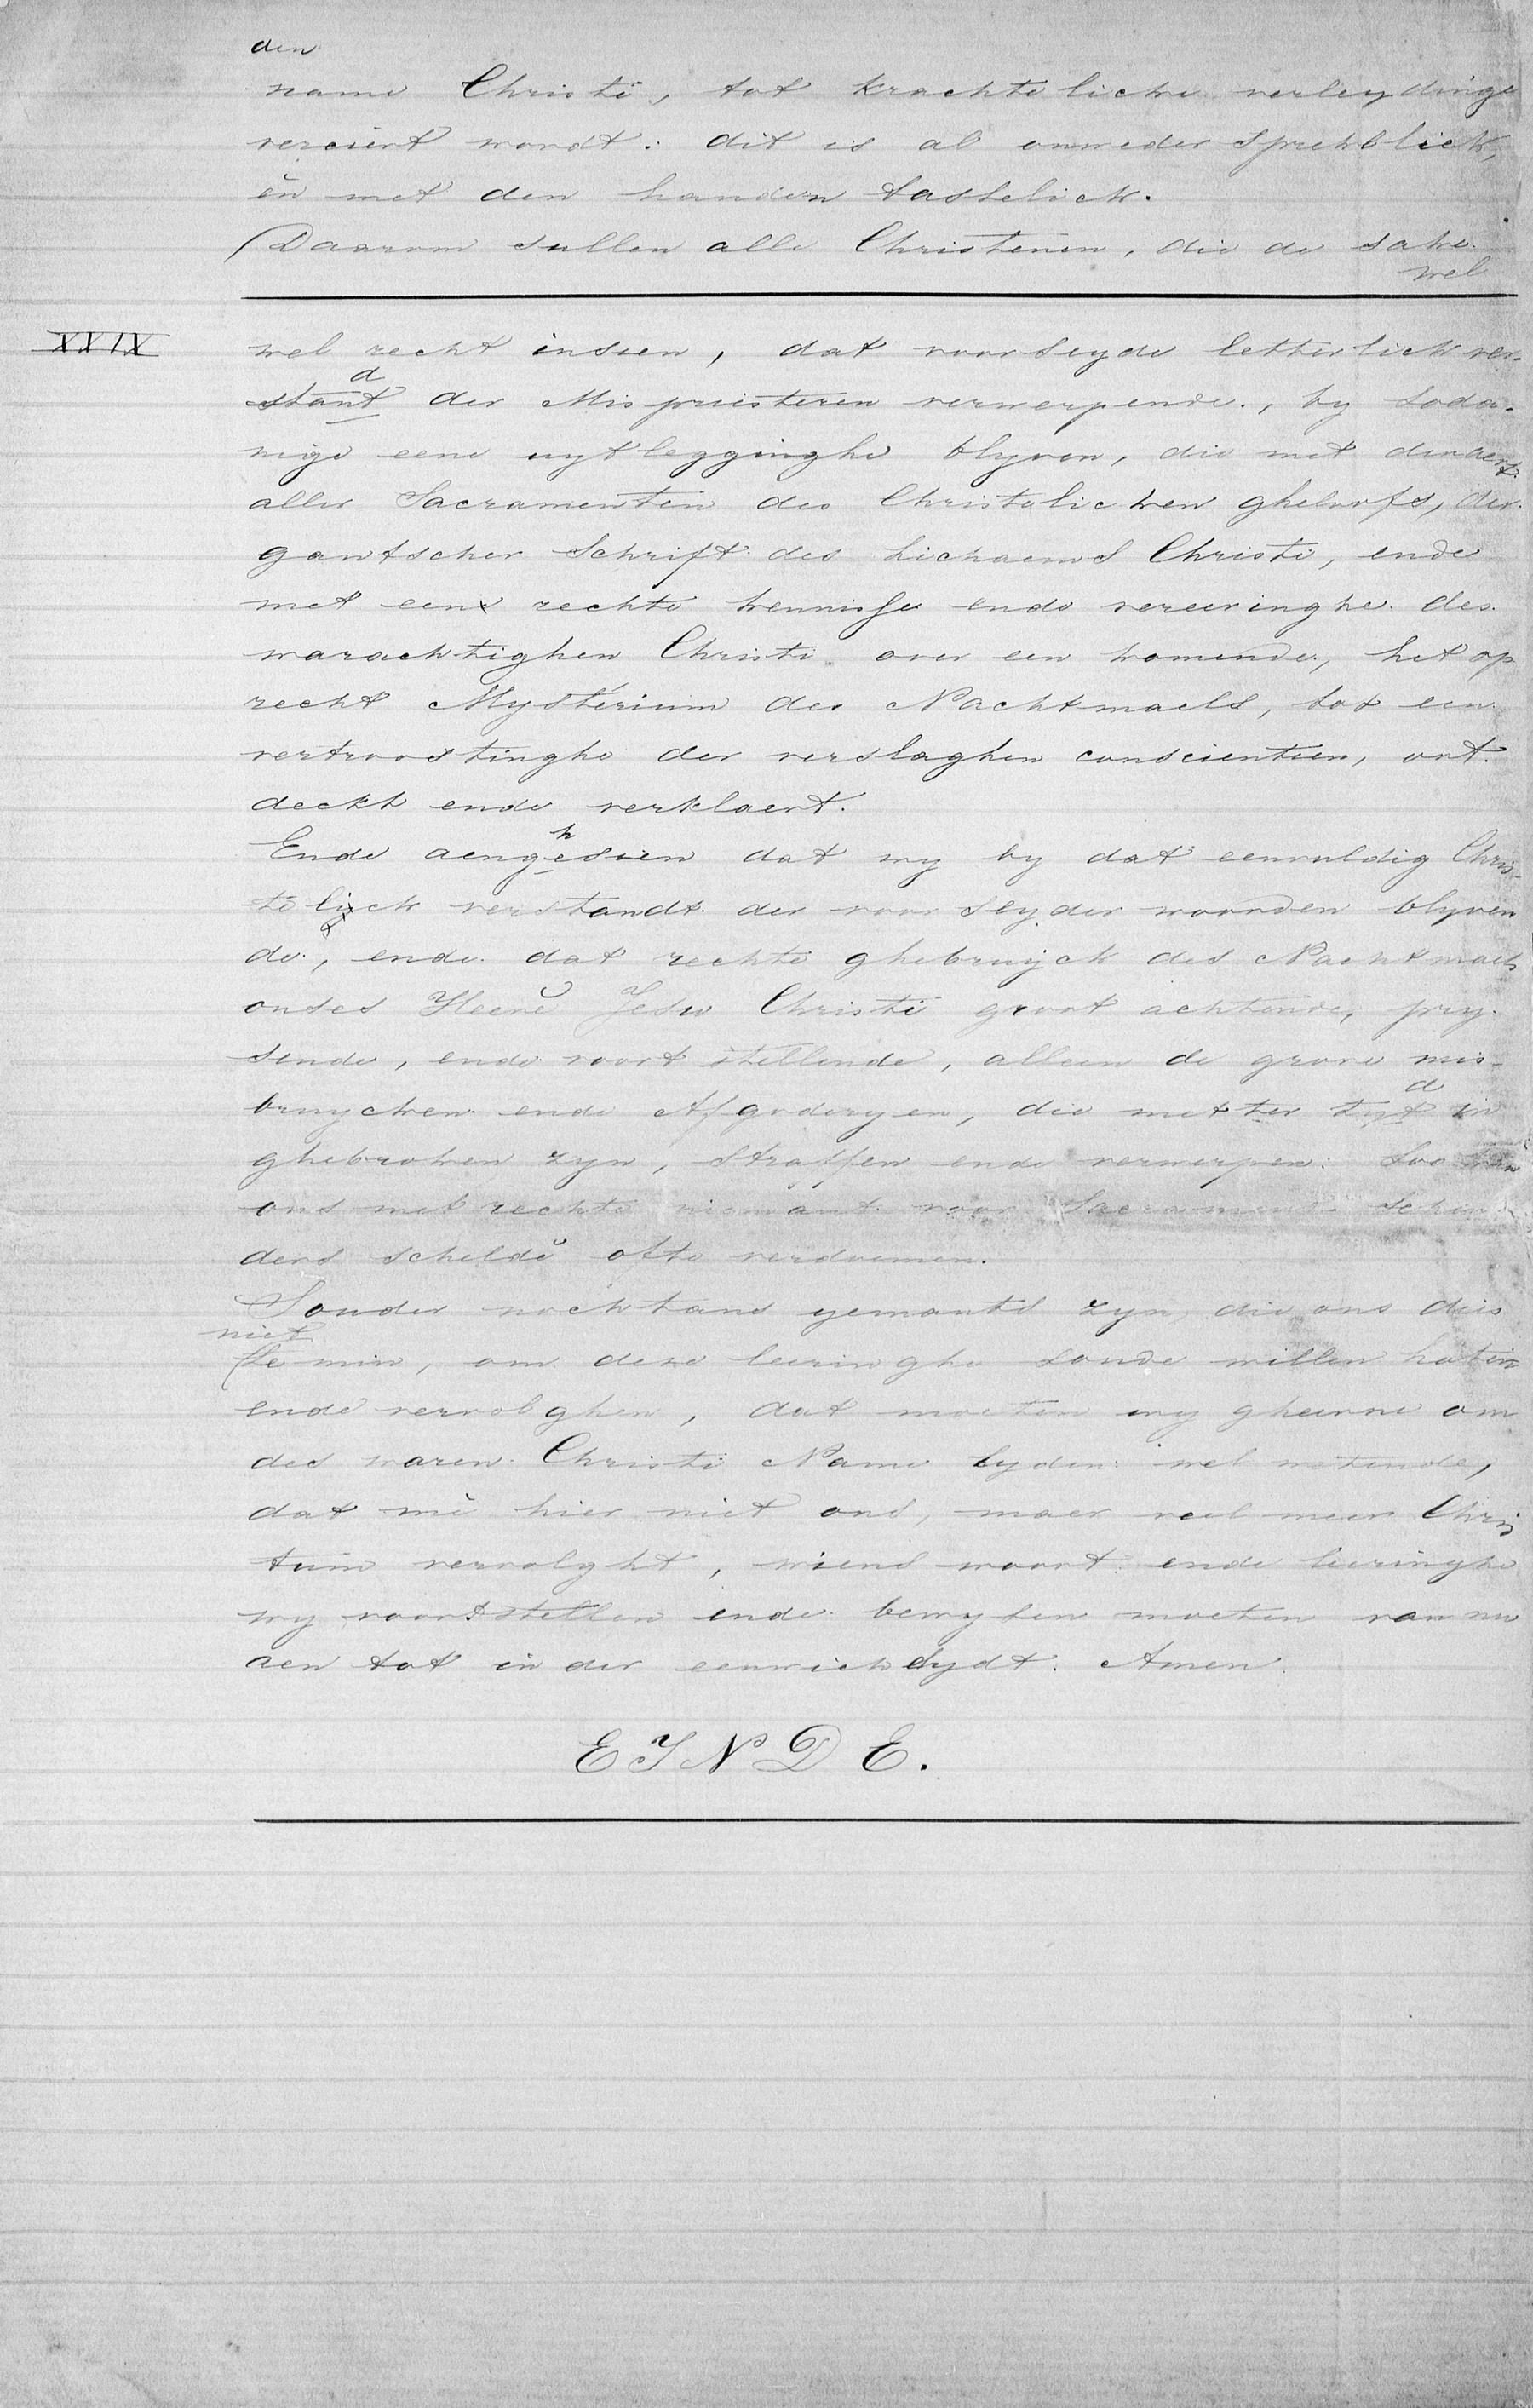 den
name Christi, tot krachtelicke verleydinge
verciert wordt: dit is al onwedersprekblick,
en met den handen tastelick.
Daarom sullen alle Christenen, die de sake
wel
XXIX
wel recht insien, dat voorseyde letterlick ver-
stant d der Mispriesteren verwerpende, by soda-
nige eene uytlegginghe blyven, die met den aert
aller Sacramenten des Christelicken gheloofs, der
gantscher Schrift des Lichaems Christi, ende
met een rechte kennisse ende vereeringhe des
warachtighen Christi over een komende, het op
recht Mysterium des Nachtmaels, tot een
vertroostinghe der verslaghen conscientien, ont-
deckt ende verklaert.
Ende aengesien h dat wy by dat eenvuldig Chris-
telick verstandt der voorseyder woorden blyven
de, ende dat rechte ghebruyck des Nachtmaels
onses Heerē Jesu Christi groot achtende, pry-
sende, ende voort stellende, alleen de grove mis-
bruycken ende Afgoderyen, die metter tyt d in
ghebroken zyn, straffen ende verwerpen: Soo kan
ons met rechte niemant voor Sacrament Schen
ders scheldē ofte verdoemen.
Sonder nochtans yemants zyn, die ons dies
niet
te min, om dese leeringhe sonde willen haten
ende vervolghen, dat moeten wy gheerne om
des waren Christi Name lyden: wel wetende,
dat mē hier niet ons, maer veel meer Chris
tum vervolght, wiens woort ende leeringhe
wy voortstellen ende bewysen moeten van nu
aen tot in der eewicheydt. Amen.
EINDE.